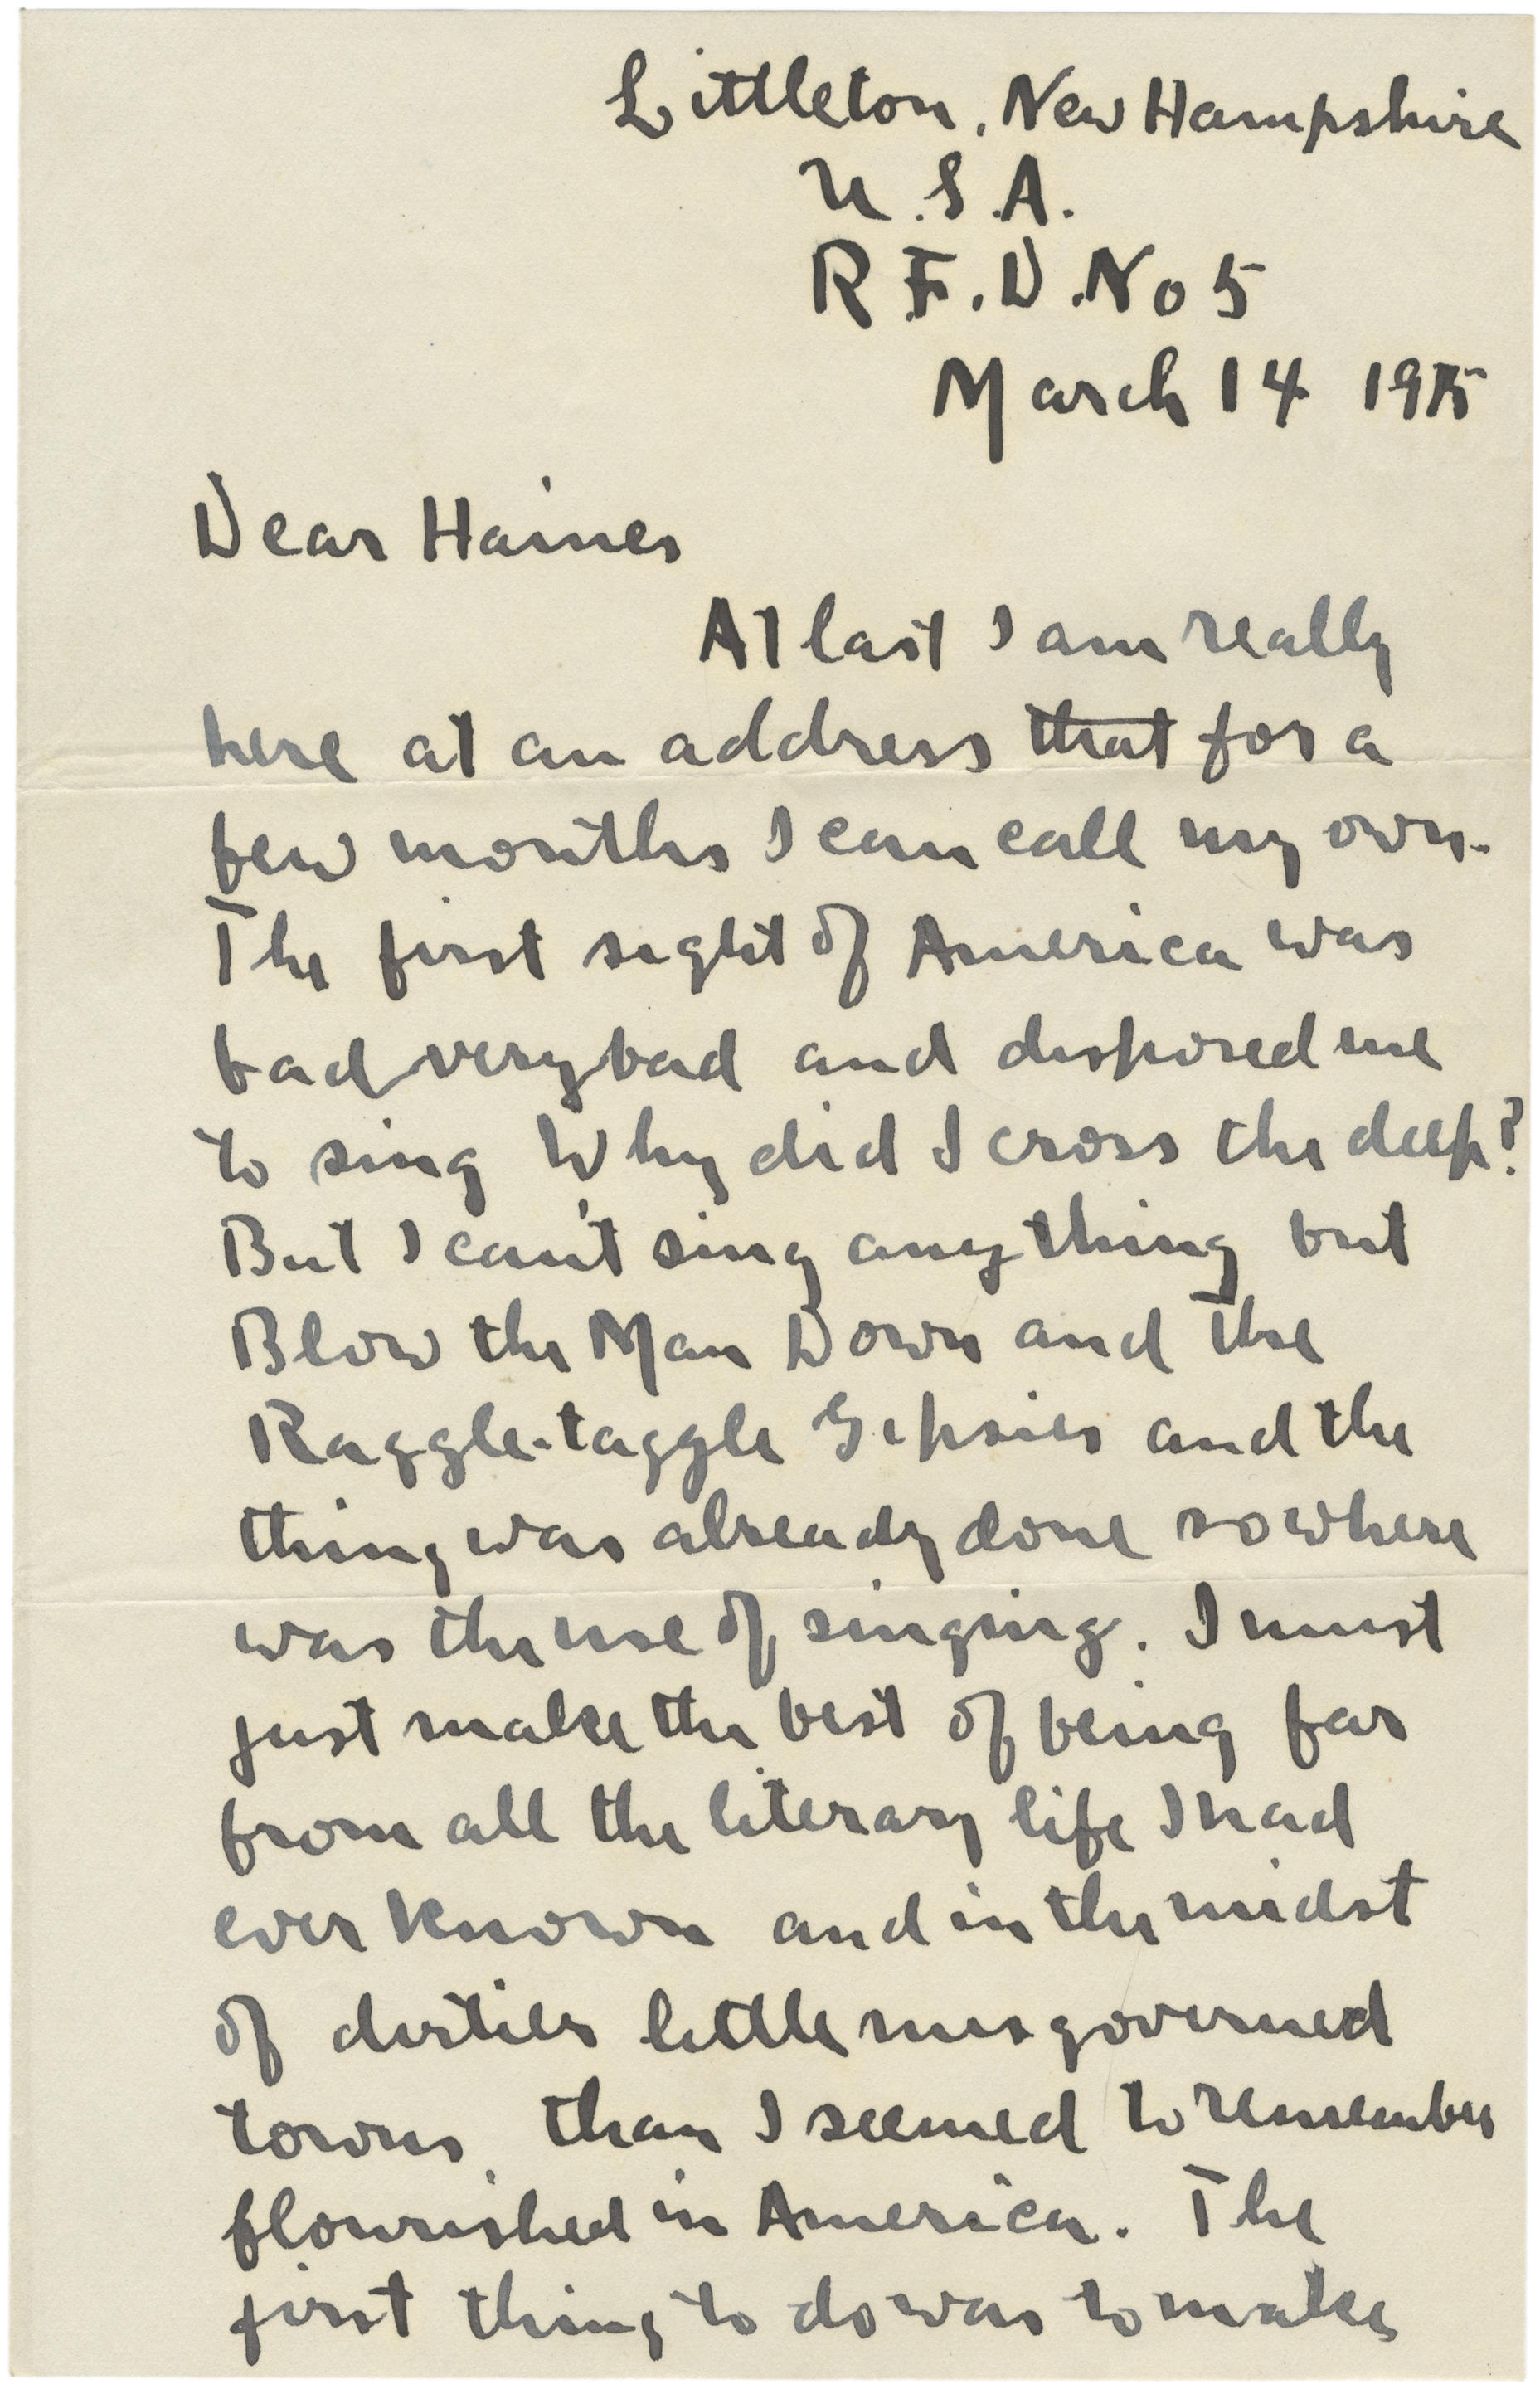 Littleton, New Hampshire
U.S.A.
R.F.D. No 5
March 14 1915
Dear Haines
At last I am really
here at an address that for a
few months I can call my own.
The first sight of America was
bad very bad and disposed me
to sing Why did I cross the deep?
But I can't sing anything but
Blow the Man Down and the
Raggle-taggle Gipsies and the
thing was already done so where
was the use of singing. I must
just make the best of being far
from all the literary life I had
ever known and in the midst
of dirtier little misgoverned
towns than I seemed to remember
flourished in America. The
first thing to do was to make